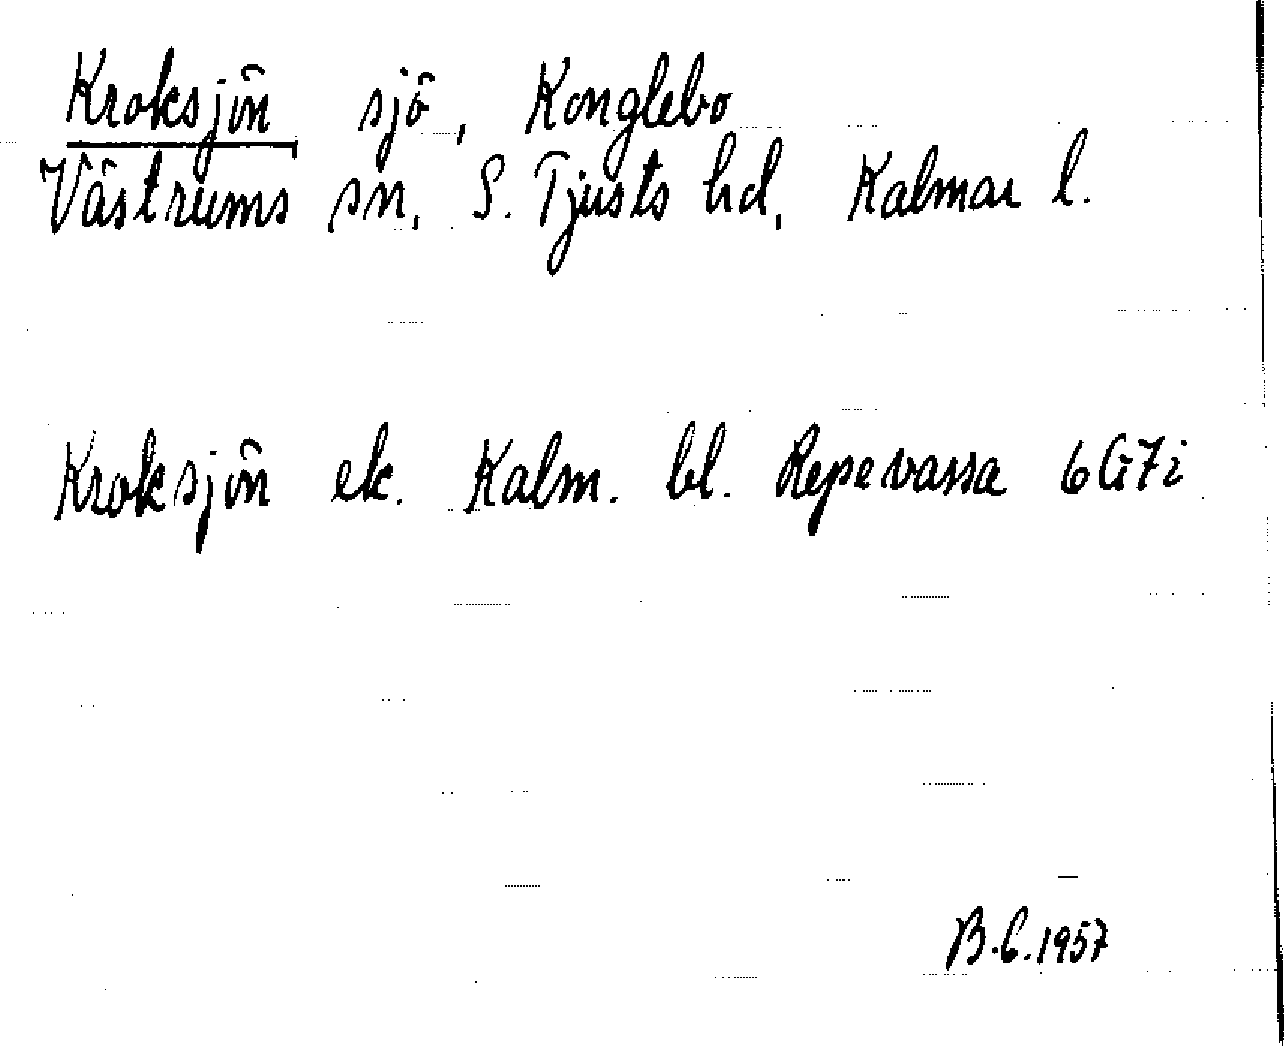 Kroksjön sjö, Konglebo
Västrums sn, S. Tjusts hd, Kalmar l.
Kroksjön ek. Kalm. bl. Repevassa 6G7i
B.C.1957